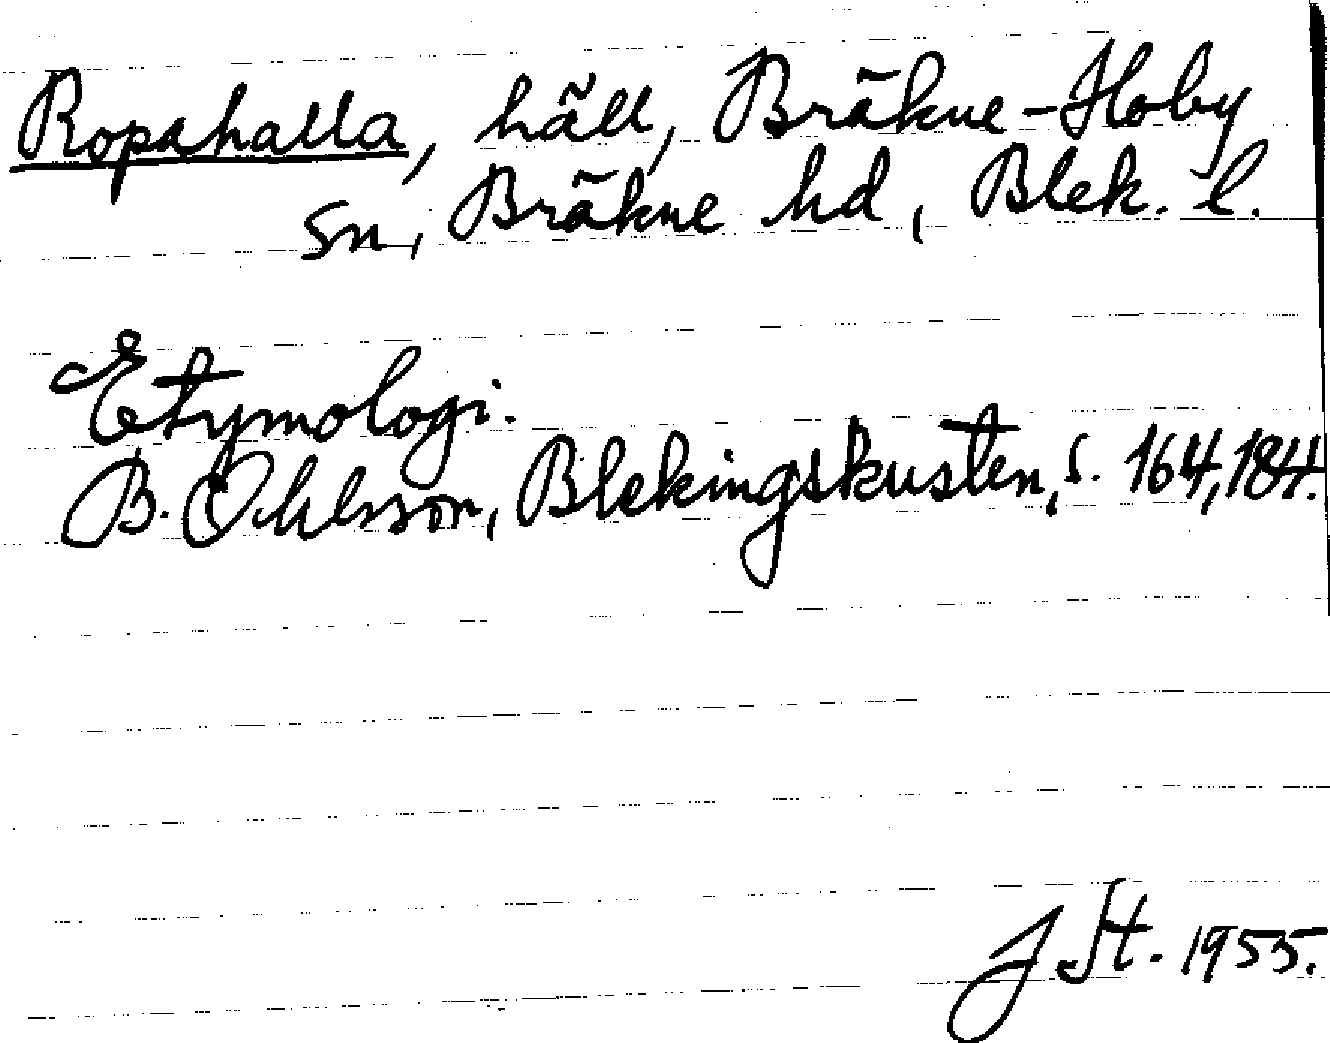 Ropahalla, häll, Bräkne-Hoby
sn, Bräkne hd, Blek. l.
Etymologi.
B. Ohlsson, Blekingskusten, s. 164, 184.
J St. 1955.